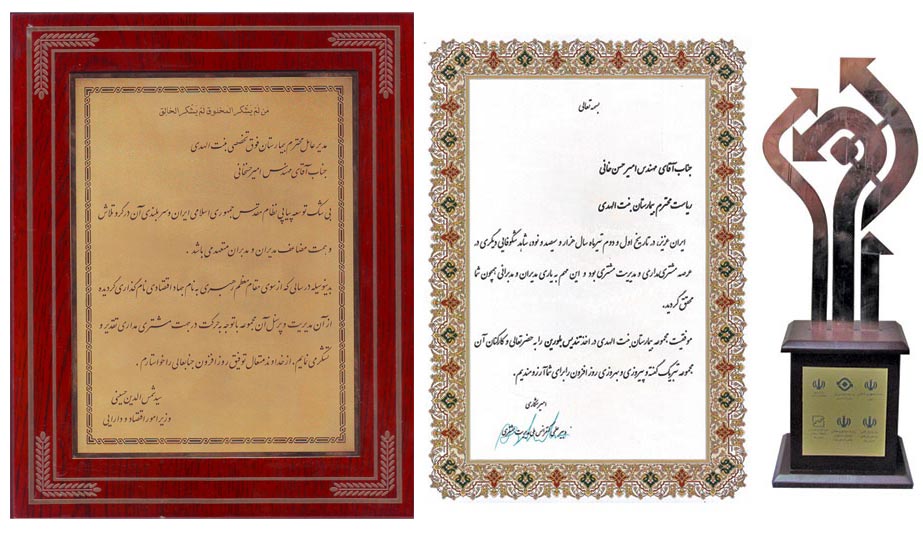 من لم یشکر المخلوق لم یشکر الخالق
مدیر عامل محترم بیمارستان فوق تخصصی بنت الهدی
جناب آقای مهندس امیر حسنخانی
بی شک توسعه پیاپی نظام مقدس جمهوری اسلامی ایران و سربلندی آن در گرو تلاش
و همت مضاعف مدیران و مدبران متعهد می باشد .
بدینوسیله در سالی که از سوی مقام معظم رهبری به نام جهاد اقتصادی نام گذاری گردیده
از آن مدیریت و پرسنل آن مجموعه با توجه به حرکت در جهت مشتری مداری تقدیر و
تشکر می نمایم . از خداوند متعال توفیق روز افزون جنابعالی را خواستارم .
سید شمس الدین حسینی
وزیر امور اقتصاد و دارایی
بسمه تعالی
جناب آقای مهندس امیر حسن خانی
ریاست محترم بیمارستان بنت الهدی
ایران عزیز، در تاریخ اول و دوم تیرماه سال هزار و سیصد و نود، شاهد شکوفایی دیگری در
عرصه مشتری مداری و مدیریت مشتری بود و این مهم به یاری مدیران و مدبرانی همچون شما
محقق گردید.
موفقیت مجموعه بیمارستان بنت الهدی در اخذ تندیس بلورین را به حضرتعالی و کارکنان آن
مجموعه تبریک گفته و پیروزی و بهروزی روز افزون را برای شما آرزومندیم.
دبیر علمی کنفرانس ملی مدیریت مشتری